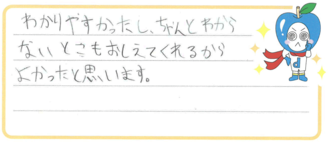 わかりやすかったし、ちゃんとわから
ないとこもおしえてくれるから
よかったと思います。
d